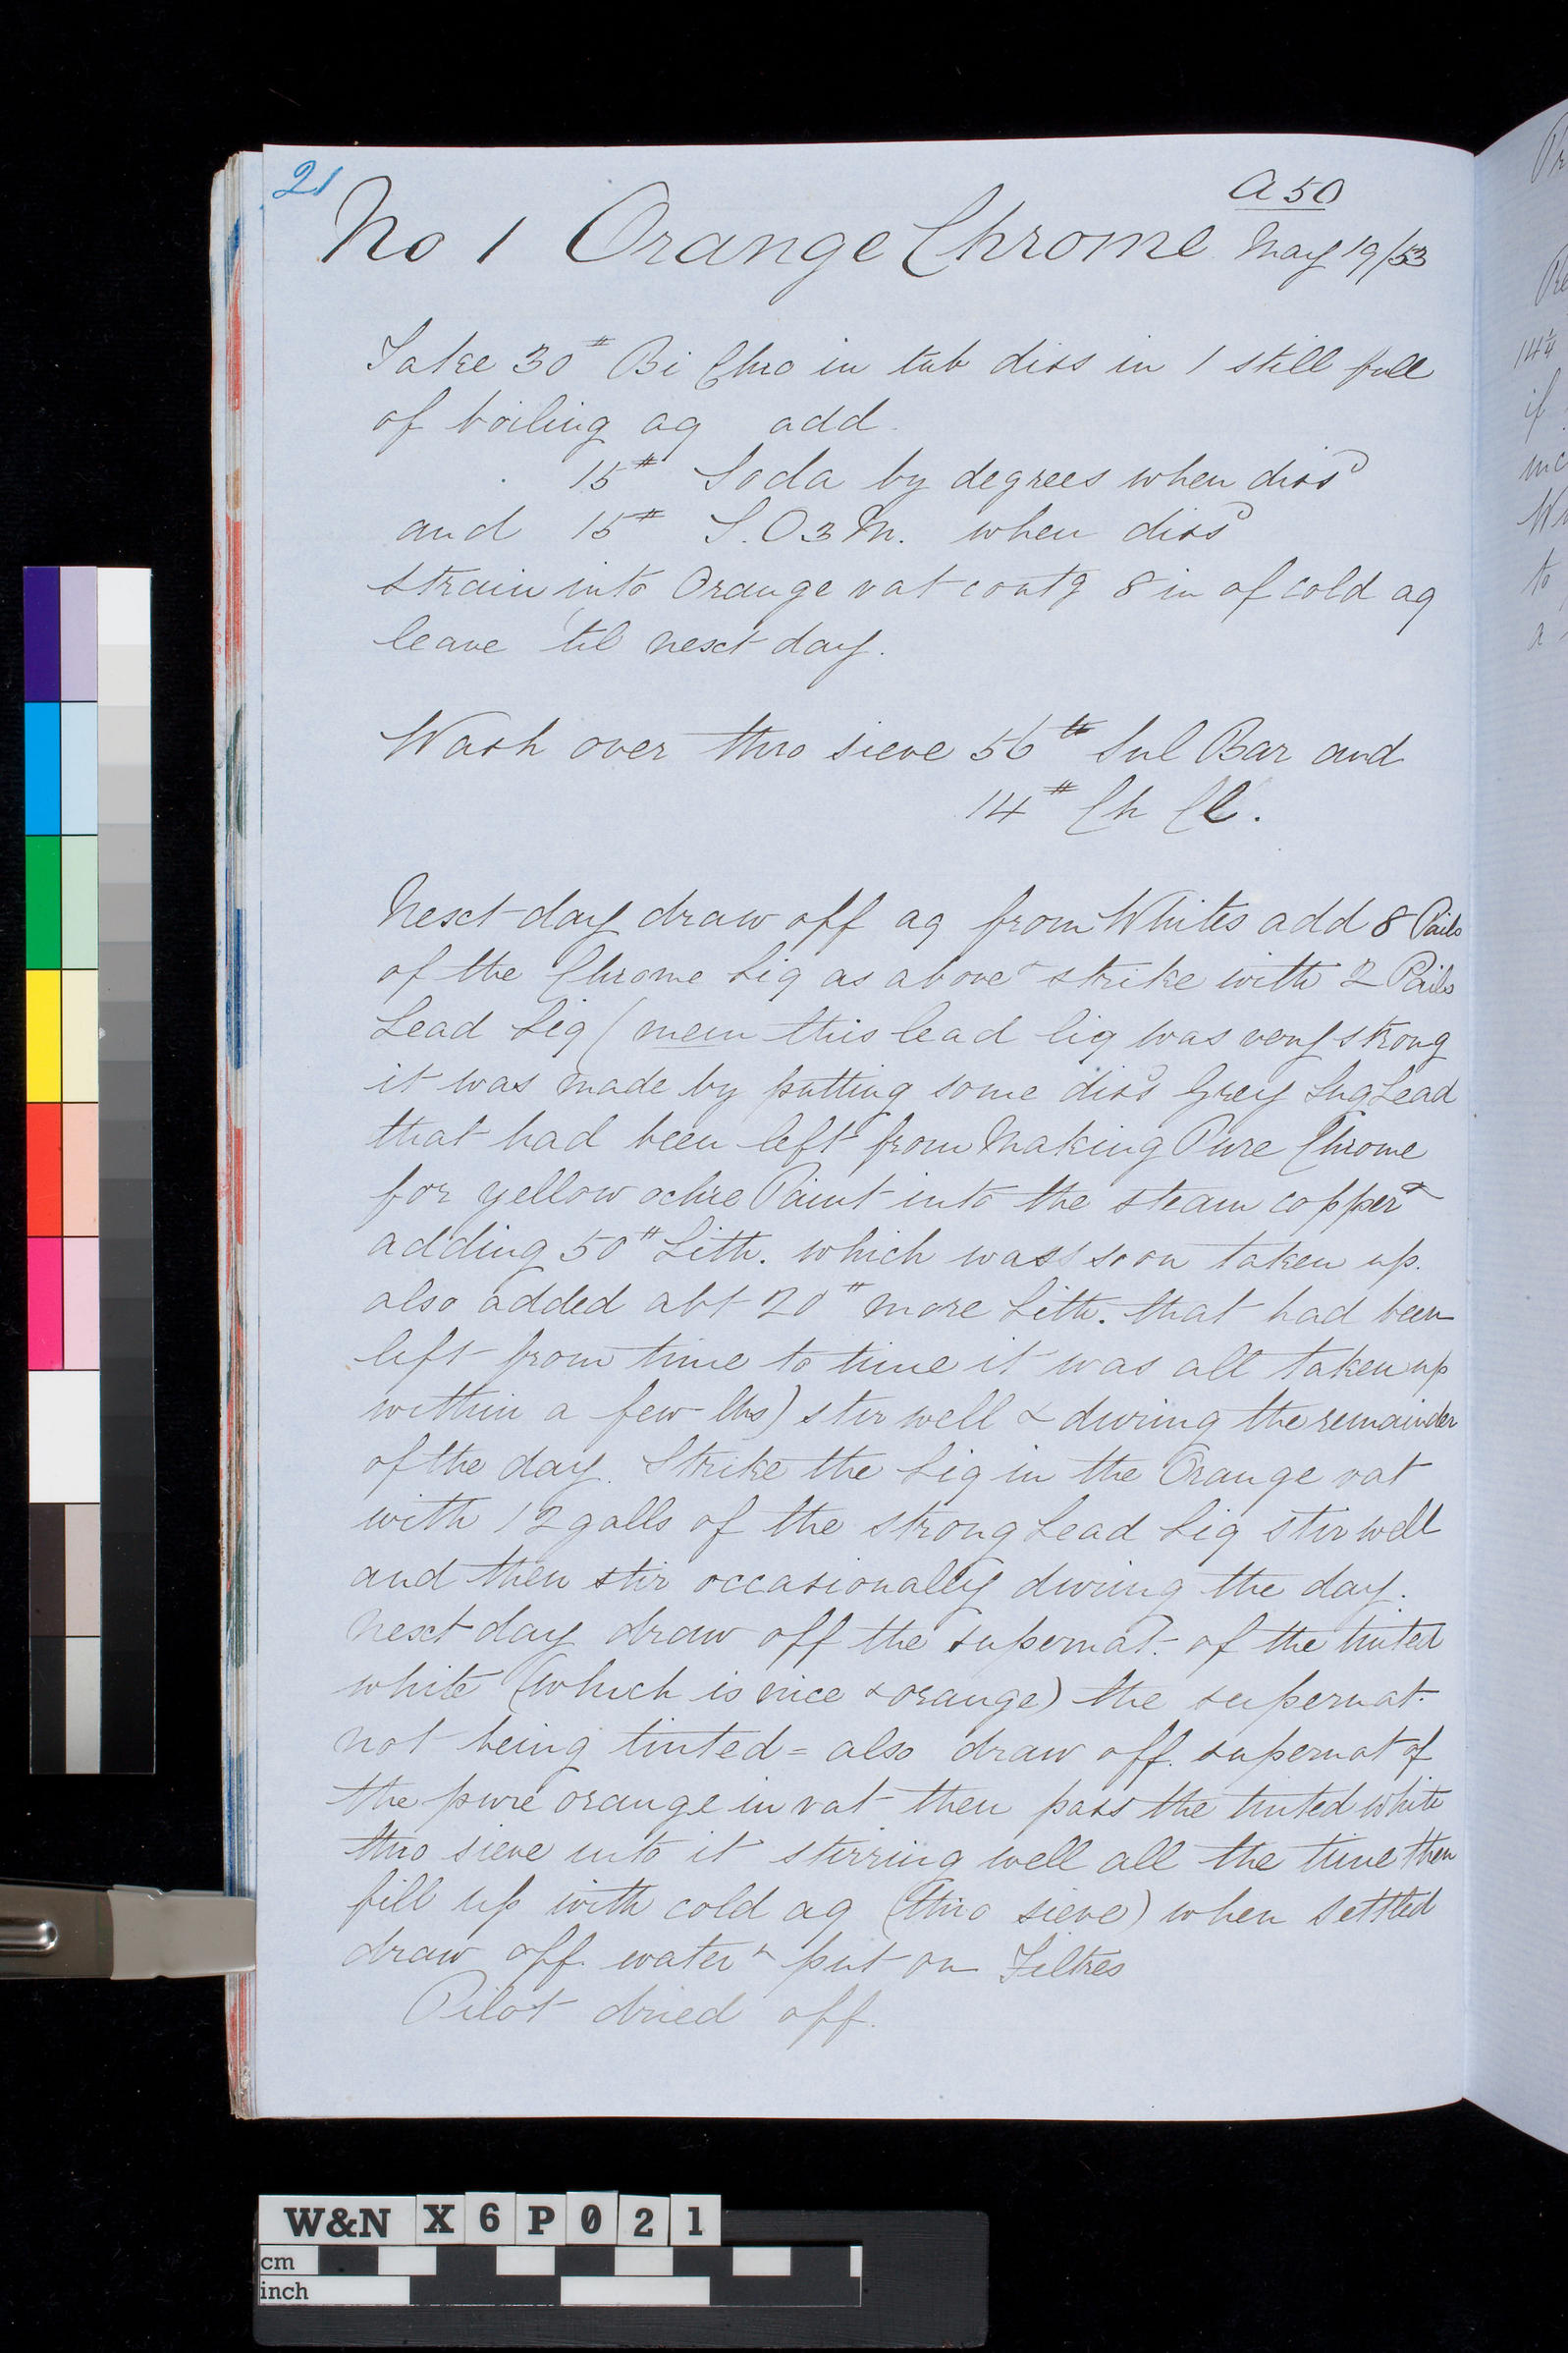 21
a 50
No 1 Orange Chrome May 19/53
Take 30# Bi Chro in tub diss in 1 still full
of boiling aq add
15# Soda by degrees when dissd
and 15# S.O3 M. when dissd
strain into Orange vat contg 8 in of cold aq
leave 'til next day.
Wash over thro sieve 56# Sul Bar and
14# Ch Cl.
Next day draw off aq from Whites add 8 Pails
of the Chrome Liq as above & strike with 2 Pails
Lead Liq (mem this lead liq was very strong
it was made by putting some dissd Grey Sug Lead
that had been left from Making Pure Chrome
for yellow ochre Paint into the steam copper &
adding 50# Lith. which was soon taken up.
also added abt 20# more Lith. that had been
left from time to time it was all taken up
within a few lbs) stir well & during the remainder
of the day. Strike the Liq in the Orange vat
with 12 galls of the strong Lead Liq stir well
and then stir occasionally during the day.
Next day draw off the supernat. of the tinted
white (which is nice & orange) the supernat.
not being tinted = also draw off. supernat of
the pure orange in vat then pass the tinted white
thro sieve into it stirring well all the time then
fill up with cold aq (thro sieve) when settled
draw off. water & put on Filtres
Pilot dried off.
W&N X6P021
cm
inch